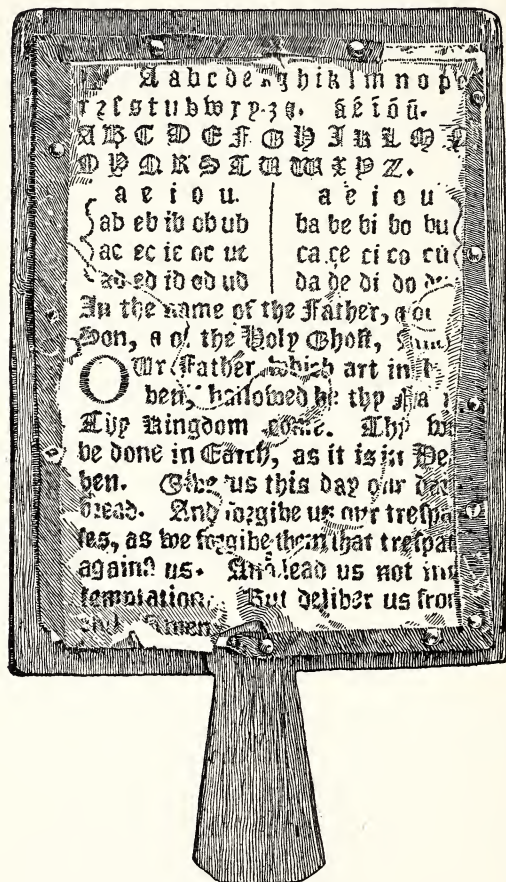 A a b c d e f g h i k l m n o p
r ꝛ ſ s t u b w x y z ꝫ ꝯ. ã ẽ ĩ õ ũ.
A B C D E F G H I K L M N
O P Q R S T U W X Y Z.
a e i o u. a e i o u
ab eb ib ob ub ba be bi bo bu
ac ec ic oc uc ca ce ci co cu
ad ed id od ud da de di do
In the name of the Father, ⁊ of
Son, ⁊ of the Holy Ghoſt,
OUr Father, which art in
ven, hallowed be thy Na
Thy Kingdom come. Thy
be done in Earth, as it is in Hea
ven. Give us this day our
bread. And forgive us our treſpa
ſes, as we forgive them that treſpaſ
againſt us. And lead us not
temptation. But deliver us from
Amen